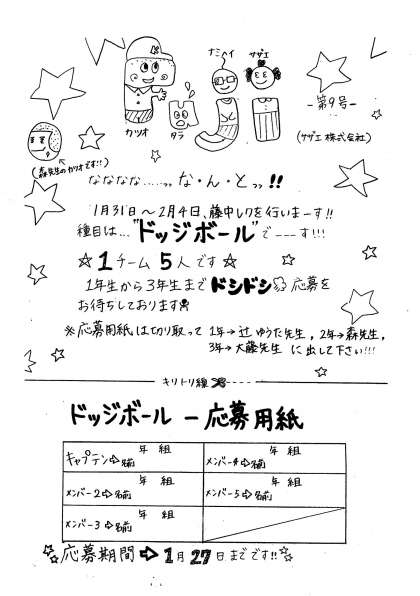 Fuji
ナミヘイ サザエ
カツオ タラ
-第9号-
(サザエ株式会社)
(森先生のカツオです!!)
なななな……っっ な・ん・とっっ!!
1月31日〜2月4日、藤中レクを行いまーす!!
種目は…"ドッジボール"でーーーす!!!
☆1チーム5人です☆
1年生から3年生までドシドシ応募を
お待ちしております
※応募用紙は切り取って 1年→辻ゆうた先生, 2年→森先生,
3年→大藤先生 に出して下さい!!!
キリトリ線
ドッジボール ー応募用紙
年 組 年 組
キャプテン⇨名前 メンバー4⇨名前
年 組 年 組
メンバー2⇨名前 メンバー5⇨名前
年 組
メンバー3⇨名前
☆応募期間➡1月27日までです!!☆